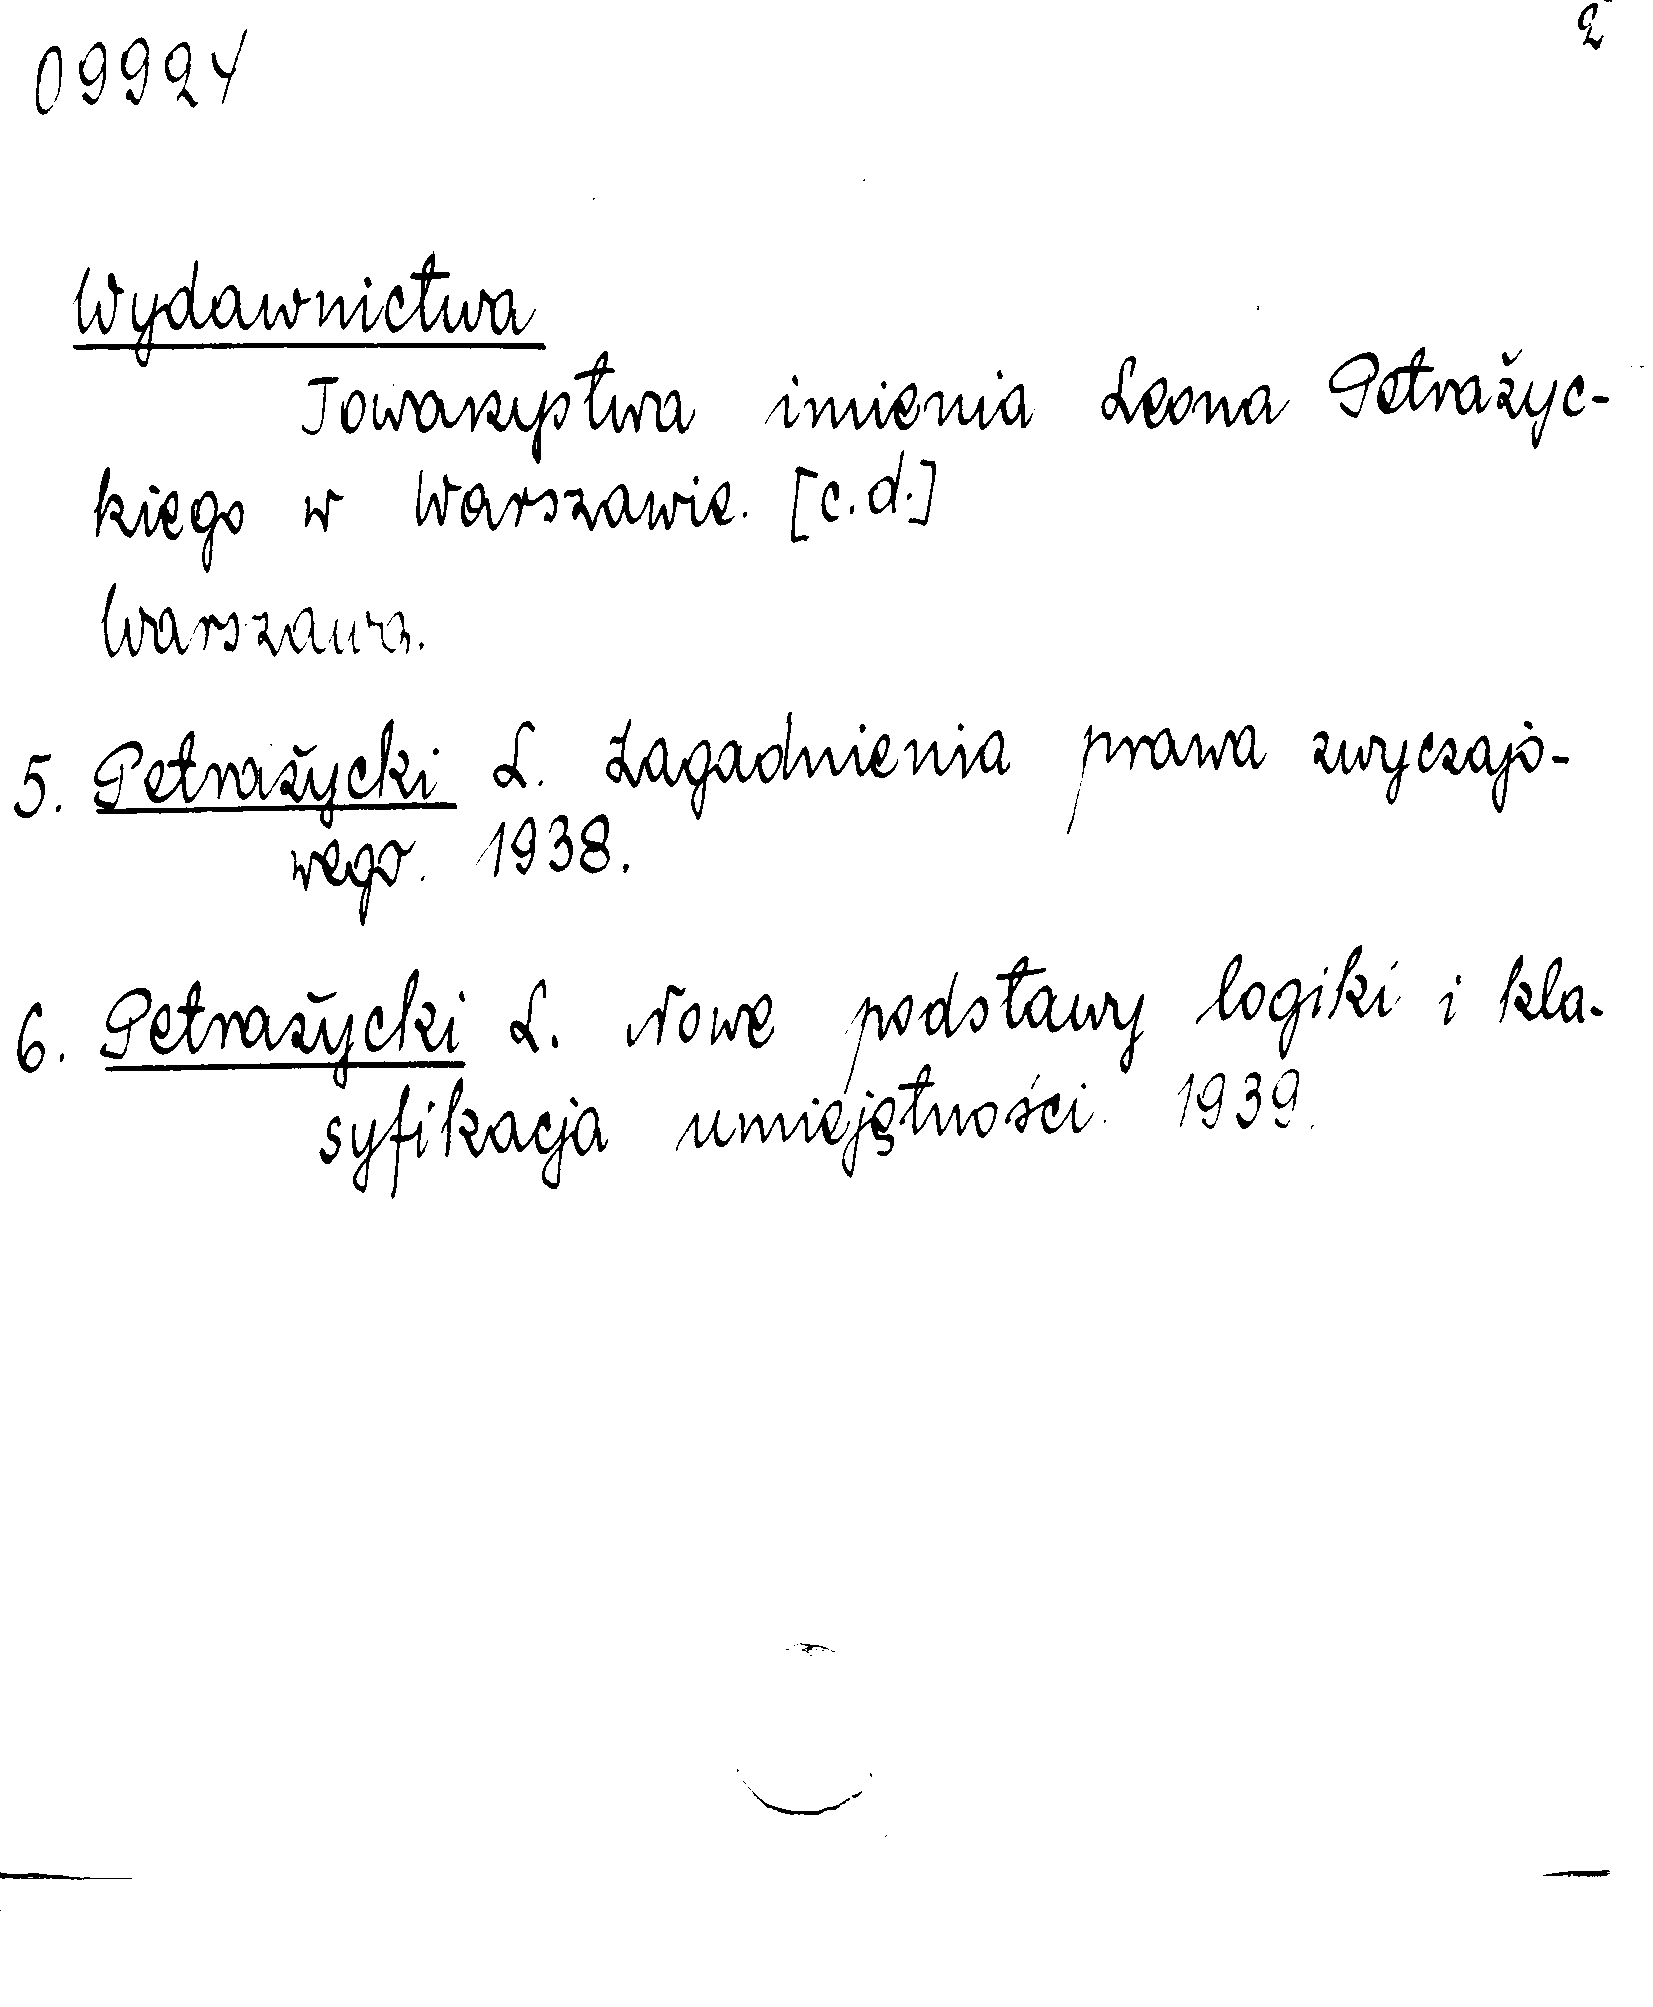 09924
2
Wydawnictwa
Towarzystwa imienia Leona Petrażyc-
kiego w Warszawie. [c.d.]
Warszawa.
5. Petrażycki L. Zagadnienia prawa zwyczajo-
wego. 1938.
6. Petrażycki L. Nowe podstawy logiki i kla-
syfikacja umiejętności. 1939.